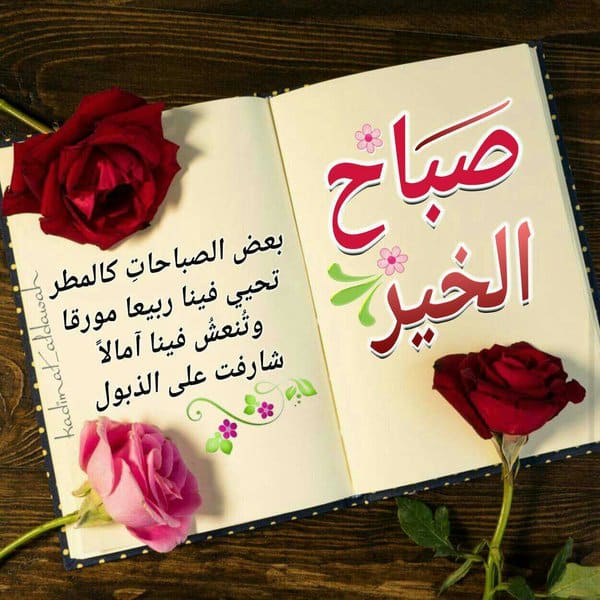 صَبَاح
الخير
بعض الصباحاتِ كالمطر
تحيي فينا ربيعا مورقا
وتُنعشُ فينا آمالاً
شارفت على الذبول
kadimat_addawah